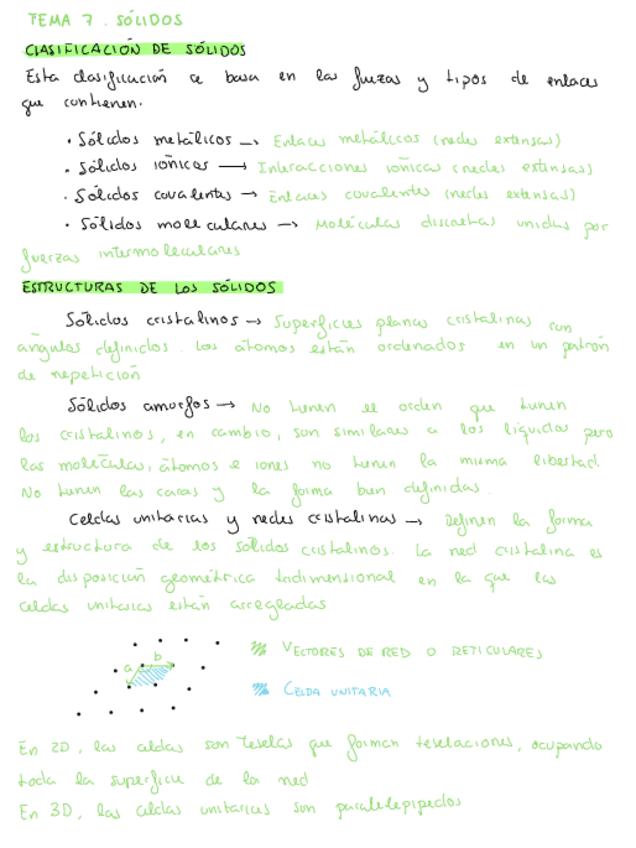 TEMA 7. SÓLIDOS
CLASIFICACIÓN DE SÓLIDOS
Esta clasificación se basa en las fuerzas y tipos de enlaces
que contienen.
· Sólidos metálicos → Enlaces metálicos (redes extensas)
· Sólidos iónicos → Interacciones iónicas (redes extensas)
· Sólidos covalentes → Enlaces covalentes (redes extensas)
· Sólidos moleculares → Moléculas discretas unidas por
fuerzas intermoleculares
ESTRUCTURAS DE LOS SÓLIDOS
Sólidos cristalinos → Superficies planas cristalinas con
ángulos definidos. Los átomos están ordenados en un patrón
de repetición
Sólidos amorfos → No tienen el orden que tienen
los cristalinos, en cambio, son similares a los líquidos pero
las moléculas, átomos e iones no tienen la misma libertad.
No tienen las caras y la forma bien definidas.
Celdas unitarias y redes cristalinas → Definen la forma
y estructura de los sólidos cristalinos. La red cristalina es
la disposición geométrica tridimensional en la que las
celdas unitarias están arregladas
b
a
VECTORES DE RED O RETICULARES
CELDA UNITARIA
En 2D, las celdas son teselas que forman teselaciones, ocupando
toda la superficie de la red
En 3D, las celdas unitarias son paralelepipedos